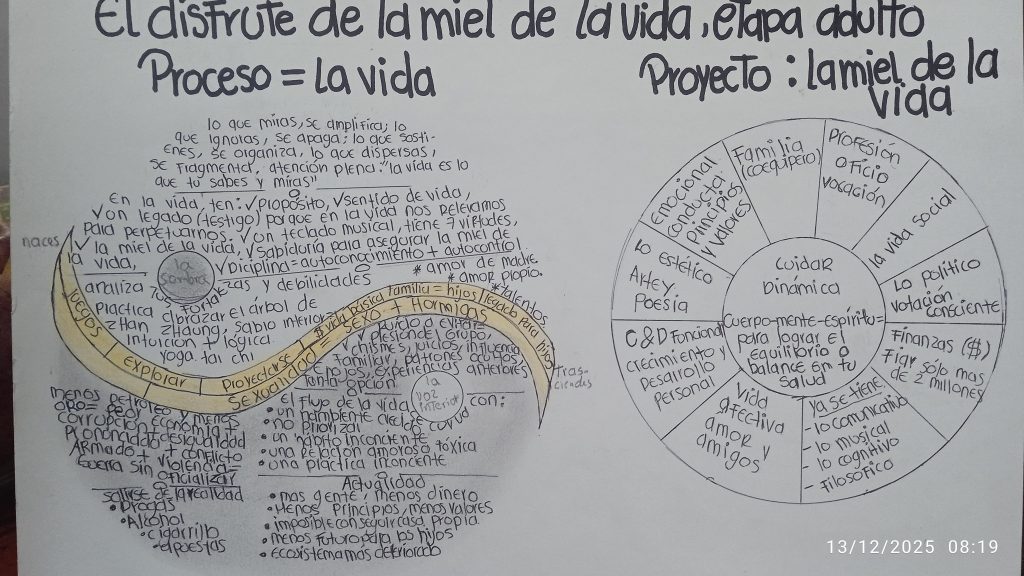 El disfrute de la miel de la vida, etapa adulto
Proceso = La vida
lo que miras, se amplifica; lo
que ignoras, se apaga; lo que sosti-
enes, se organiza, lo que dispersas,
se fragmenta, atención plena: "la vida es lo
que tú sabes y miras"
En la vida ten: ✓Propósito, ✓sentido de vida,
✓on legado (testigo) porque en la vida nos releramos
para perpetuarnos. ✓on teclado musical, tiene 7 virtudes,
✓ la miel de la vida, ✓sabiduría para asegurar la miel de
la vida, ✓Diciplina = autoconocimiento + autocontrol
* amor de madre
* amor propio.
* talentos
naces
la
sombra
analiza tus fortalezas y debilidades
Practica abrazar el árbol de
Zhan Zhaung, sabio interior
Intuición + lógica
yoga tai chi
Juegos
explorar
Proyectarse
* vida básica familia = hijos (legado para hijos)
Sexualidad = sexo + Hormigas
Tras-
ciendes
presiones de grupo,
experiencias anteriores
tanta opción
la
voz
interior
el flujo de la vida con:
• un
• no
• un hábito inconciente
• una relación amoroso tóxica
• una práctica inconcente
menos petróleo
corrupción
Pronunciado desigualdad
Armado + + conflicto
Guerra sin violencia =
oficializar
salirse de la realidad
• Drogas
• Alcohol
• cigarrillo
• apuestas
Actualidad
• mas gente, menos dinero
• Menos principios, menos valores
• imposible conseguir casa propia
• menos futuro para los hijos
• ecosistema mas deteriorado
Proyecto : la miel de la
vida
Familia
(coequipero)
Profesión
oficio
vocación
la vida social
Lo político
votación
consciente
Finanzas ($)
Fiar sólo mas
de 2 millones
Ya se tiene:
- lo comunicativo
- lo musical
- lo cognitivo
- filosófica
Vida
afectiva
amor y
amigos
C&D Funcional
crecimiento y
Desarrollo
personal
lo estético
Arte y
Poesía
emocional
conducta:
principios
y valores
Cuidar
Dinámica
Cuerpo-mente-espíritu=
para lograr el
equilibrio o
balance en tu
salud
13/12/2025 08:19